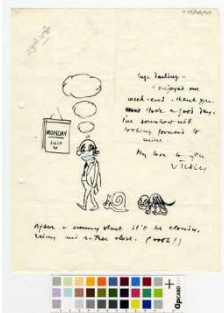 MONDAY
darling -
I enjoyed our
week-end. Thank you.
have a good day.
I'm somehow not
looking forward to
mine
My love to you
After a sunny start it'll be cloudy,
rainy and rather close. (Pooh!)